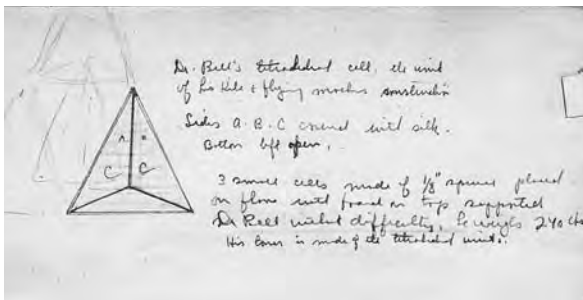 Dr. Bell's tetrahedral cell, the unit
of his kite & flying machine construction
Sides A. B. C covered with silk.
Bottom left open.
3 small cells made of 1/8" spruce placed
on floor with board on top supported
Dr Bell without difficulty, he weighs 240 lbs
His tower is made of the tetrahedral units.
A
C
C